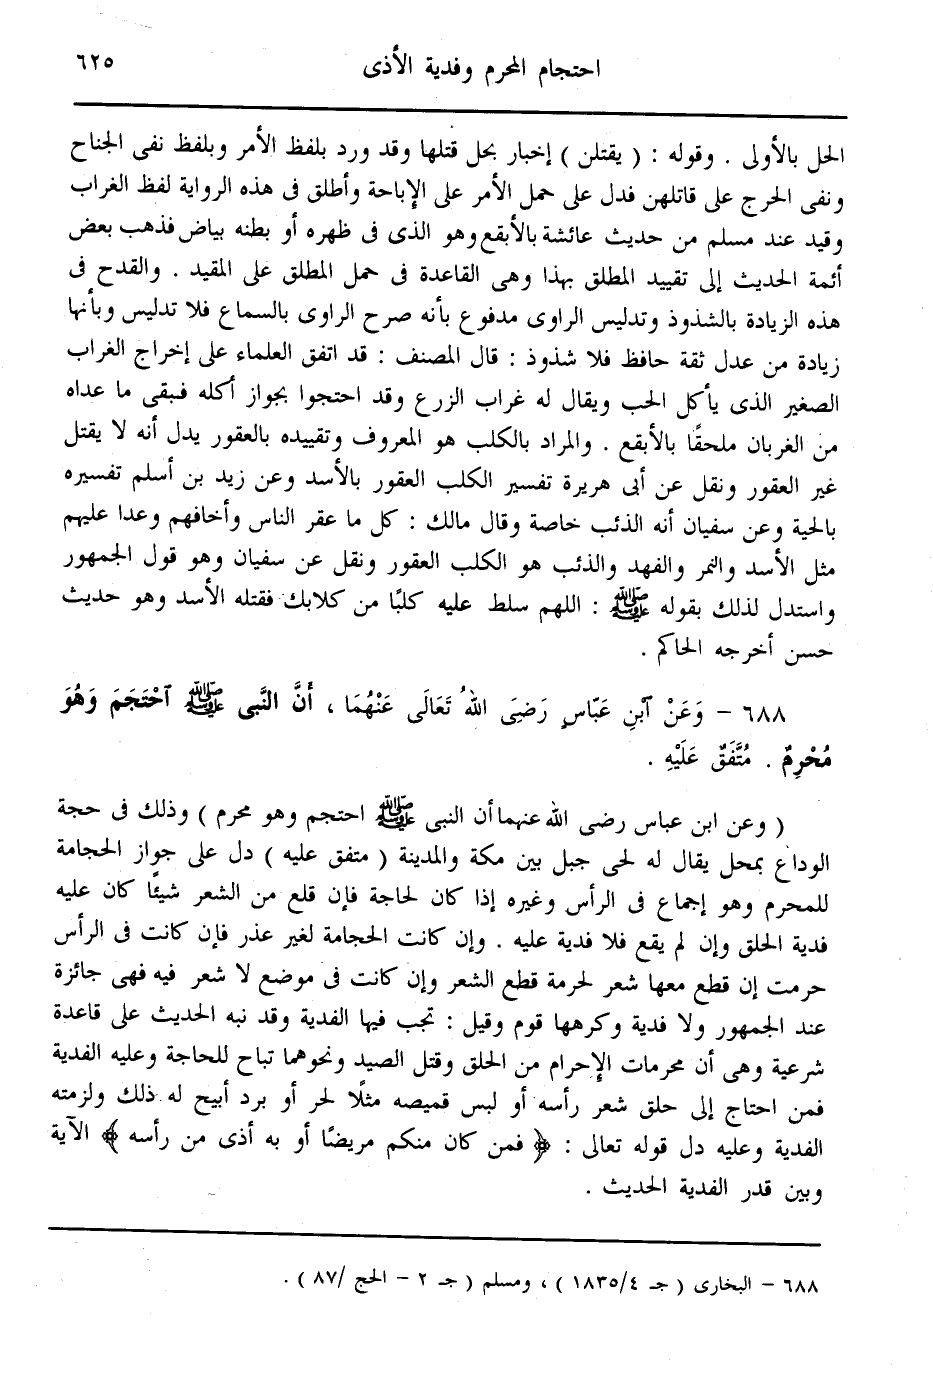 احتجام المحرم وفدية الأذى
٦٢٥
الحل بالأولى . وقوله : ( يقتلن ) إخبار بحل قتلها وقد ورد بلفظ الأمر وبلفظ نفى الجناح
ونفى الحرج على قاتلهن فدل على حمل الأمر على الإباحة وأطلق فى هذه الرواية لفظ الغراب
وقيد عند مسلم من حديث عائشة بالأبقع وهو الذى فى ظهره أو بطنه بياض فذهب بعض
أئمة الحديث إلى تقييد المطلق بهذا وهى القاعدة فى حمل المطلق على المقيد . والقدح فى
هذه الزيادة بالشذوذ وتدليس الراوى مدفوع بأنه صرح الراوى بالسماع فلا تدليس وبأنها
زيادة من عدل ثقة حافظ فلا شذوذ : قال المصنف : قد اتفق العلماء على إخراج الغراب
الصغير الذى يأكل الحب ويقال له غراب الزرع وقد احتجوا بجواز أكله فبقى ما عداه
من الغربان ملحقًا بالأبقع . والمراد بالكلب هو المعروف وتقييده بالعقور يدل أنه لا يقتل
غير العقور ونقل عن أبى هريرة تفسير الكلب العقور بالأسد وعن زيد بن أسلم تفسيره
بالحية وعن سفيان أنه الذئب خاصة وقال مالك : كل ما عقر الناس وأخافهم وعدا عليهم
مثل الأسد والنمر والفهد والذئب هو الكلب العقور ونقل عن سفيان وهو قول الجمهور
واستدل لذلك بقوله ﷺ : اللهم سلط عليه كلبًا من كلابك فقتله الأسد وهو حديث
حسن أخرجه الحاكم .
٦٨٨ – وَعَنْ آبْنِ عَبّاسٍ رَضِىَ اللهُ تَعَالَى عَنْهُمَا ، أَنَّ النَّبِى ﷺ آحْتَجَمَ وَهُوَ
مُحْرِمٌ . مُتَّفَقٌ عَلَيْهِ .
( وعن ابن عباس رضى الله عنهما أن النبى ﷺ احتجم وهو محرم ) وذلك فى حجة
الوداع بمحل يقال له لحى جبل بين مكة والمدينة ( متفق عليه ) دل على جواز الحجامة
للمحرم وهو إجماع فى الرأس وغيره إذا كان لحاجة فإن قلع من الشعر شيئًا كان عليه
فدية الحلق وإن لم يقع فلا فدية عليه . وإن كانت الحجامة لغير عذر فإن كانت فى الرأس
حرمت إن قطع معها شعر لحرمة قطع الشعر وإن كانت فى موضع لا شعر فيه فهى جائزة
عند الجمهور ولا فدية وكرهها قوم وقيل : تجب فيها الفدية وقد نبه الحديث على قاعدة
شرعية وهى أن محرمات الإحرام من الحلق وقتل الصيد ونحوهما تباح للحاجة وعليه الفدية
فمن احتاج إلى حلق شعر رأسه أو لبس قميصه مثلًا لحر أو برد أبيح له ذلك ولزمته
الفدية وعليه دل قوله تعالى : ﴿ فمن كان منكم مريضًا أو به أذى من رأسه ﴾ الآية
وبين قدر الفدية الحديث .
٦٨٨ – البخارى ( جـ ٤/١٨٣٥ ) ، ومسلم ( جـ ٢ – الحج /٨٧ ) .